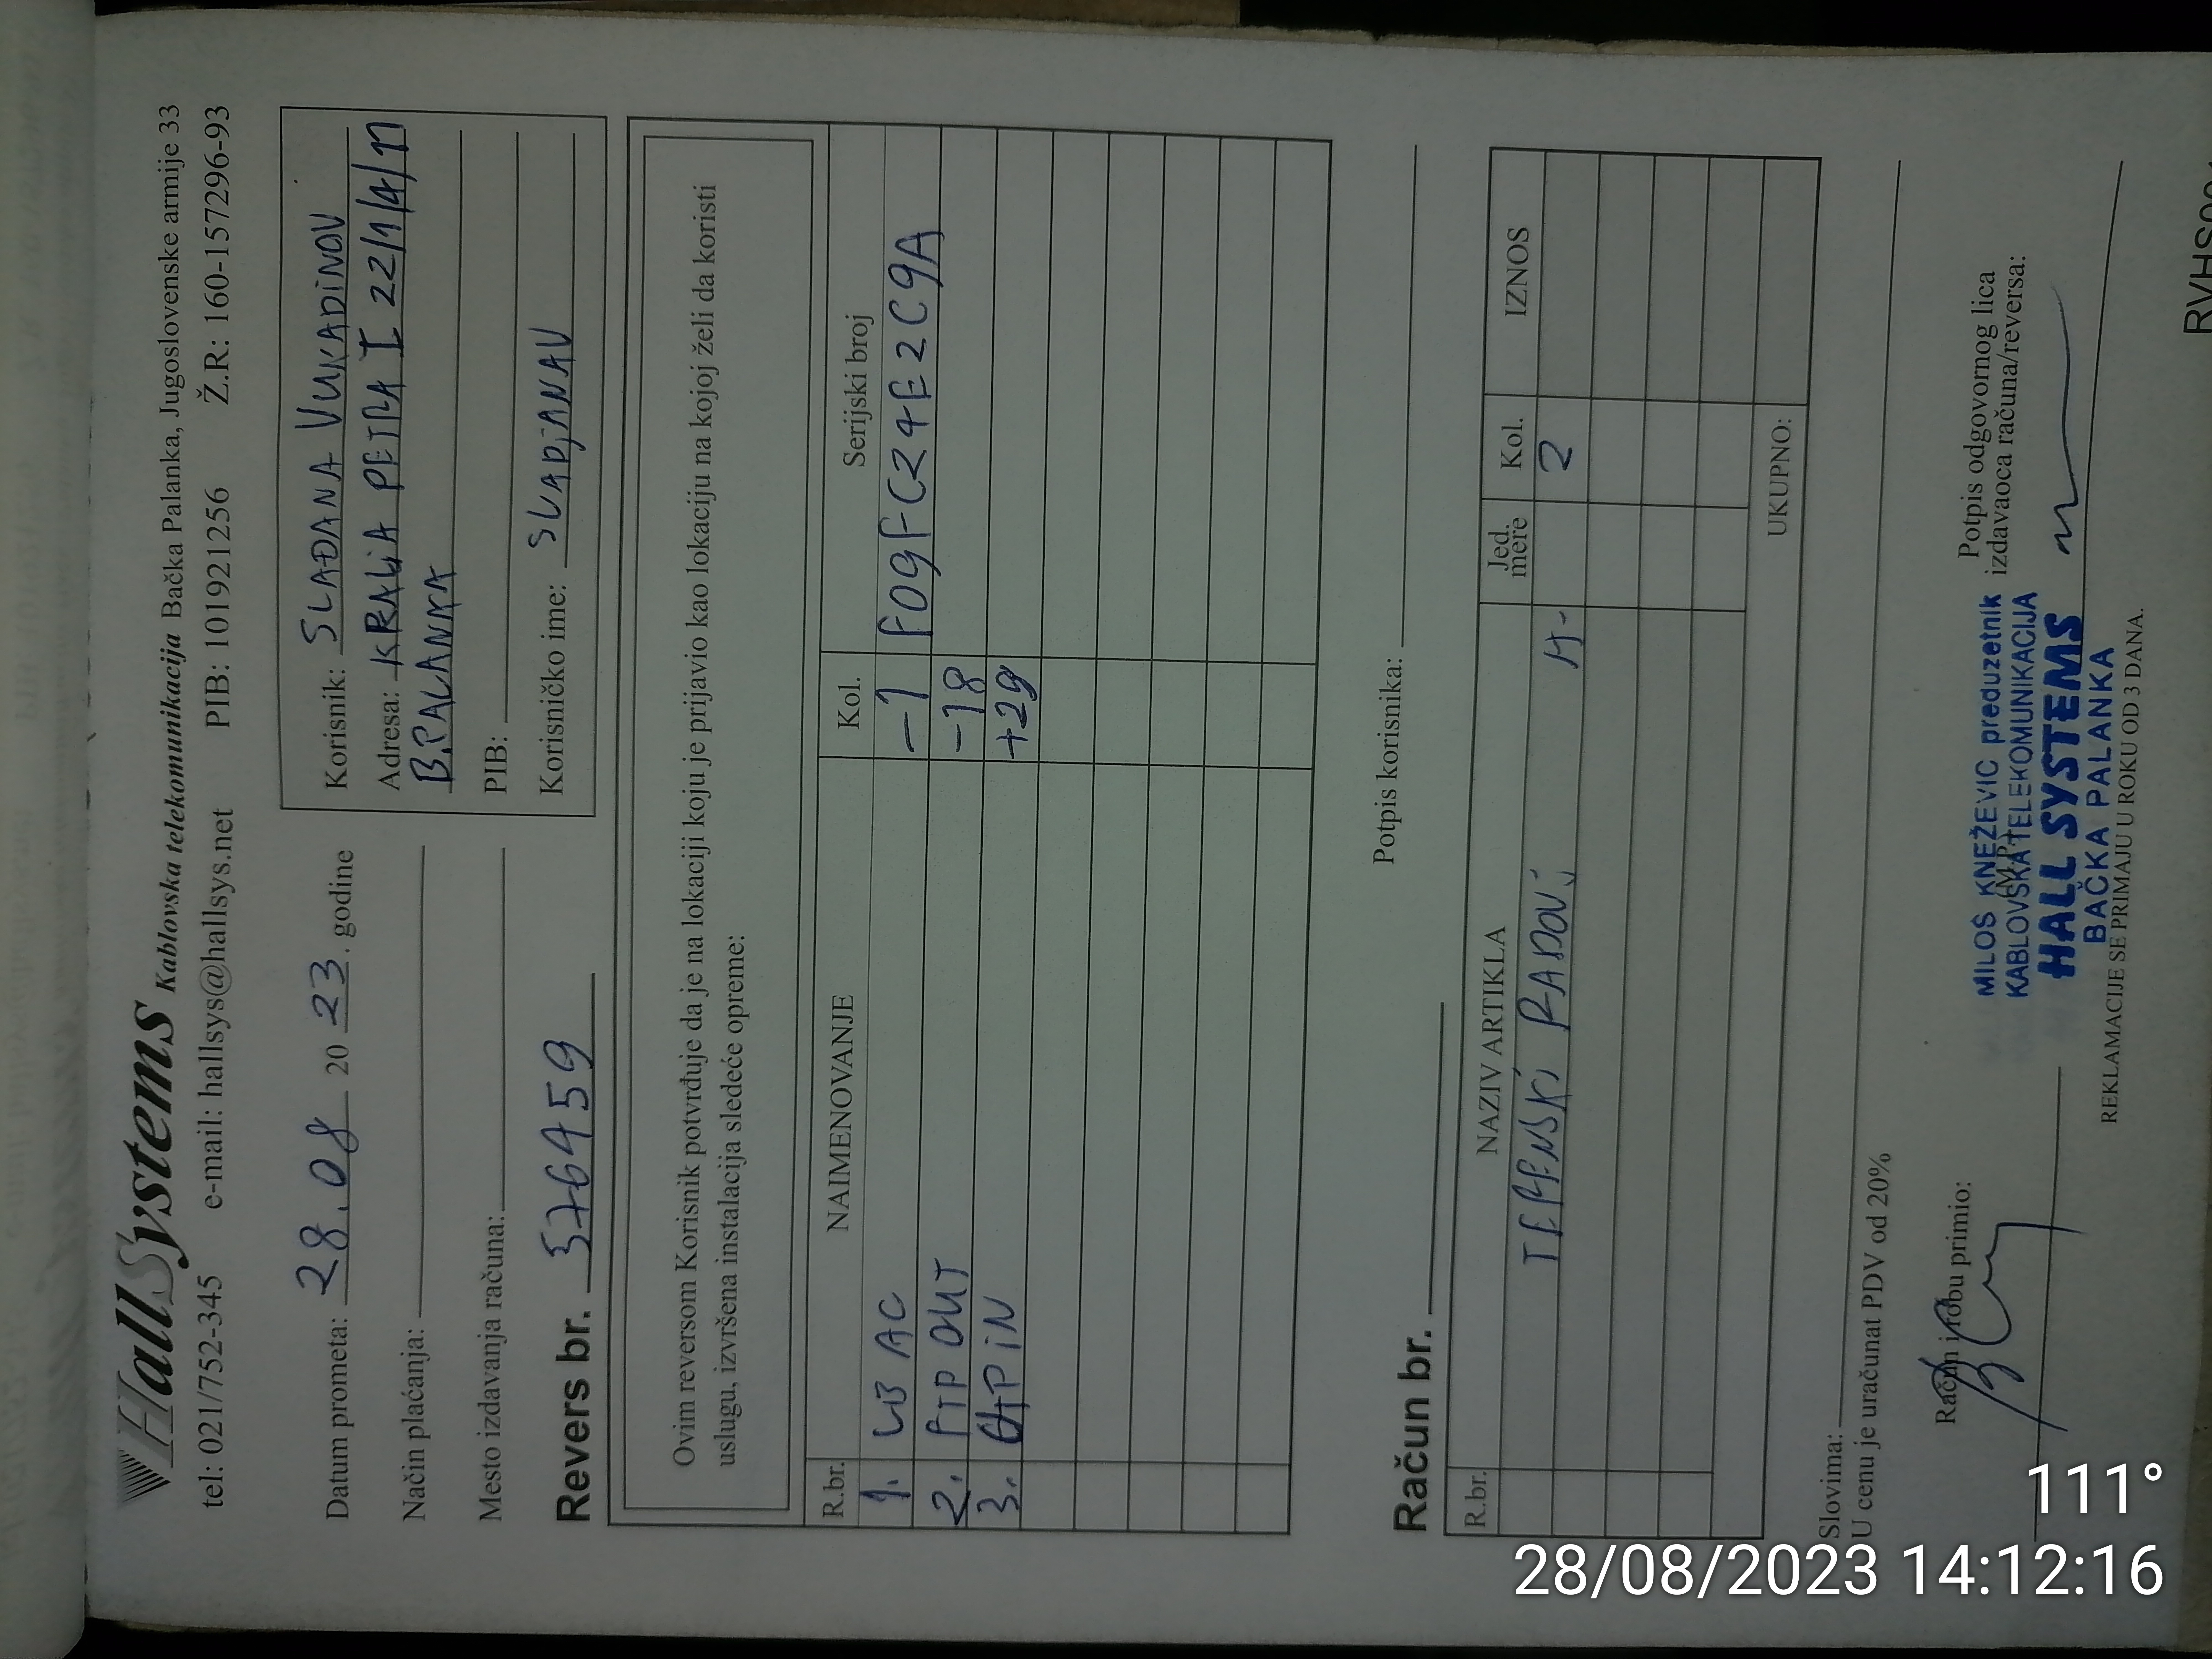 HallSystems Kablovska telekomunikacija Bačka Palanka, Jugoslovenske armije 33
tel: 021/752-345 e-mail: hallsys@hallsys.net PIB: 101921256 Ž.R: 160-157296-93
Datum prometa: 28.08 20 23. godine
Način plaćanja:
Mesto izdavanja računa:
Korisnik: SLAĐANA VUKADINOV
Adresa: KRALJA PETRA I 22/1/4/17
B.PALANKA
PIB:
Korisničko ime: SLADJANAV
Revers br. 576459
Ovim reversom Korisnik potvrđuje da je na lokaciji koju je prijavio kao lokaciju na kojoj želi da koristi
uslugu, izvršena instalacija sledeće opreme:
R.br. NAIMENOVANJE Kol. Serijski broj
1. LB AC -1 F09FC24E2C9A
2. FTP OUT -18
3. UTP IN +29
Potpis korisnika:
Račun br.
R.br. NAZIV ARTIKLA Jed. mere Kol. IZNOS
TERENSKI RADOVI H- 2
UKUPNO:
Slovima:
U cenu je uračunat PDV od 20%
Račun i robu primio:
Potpis odgovornog lica
izdavaoca računa/reversa:
MILOŠ KNEŽEVIĆ preduzetnik
KABLOVSKA TELEKOMUNIKACIJA
HALL SYSTEMS
BAČKA PALANKA
REKLAMACIJE SE PRIMAJU U ROKU OD 3 DANA.
111°
28/08/2023 14:12:16